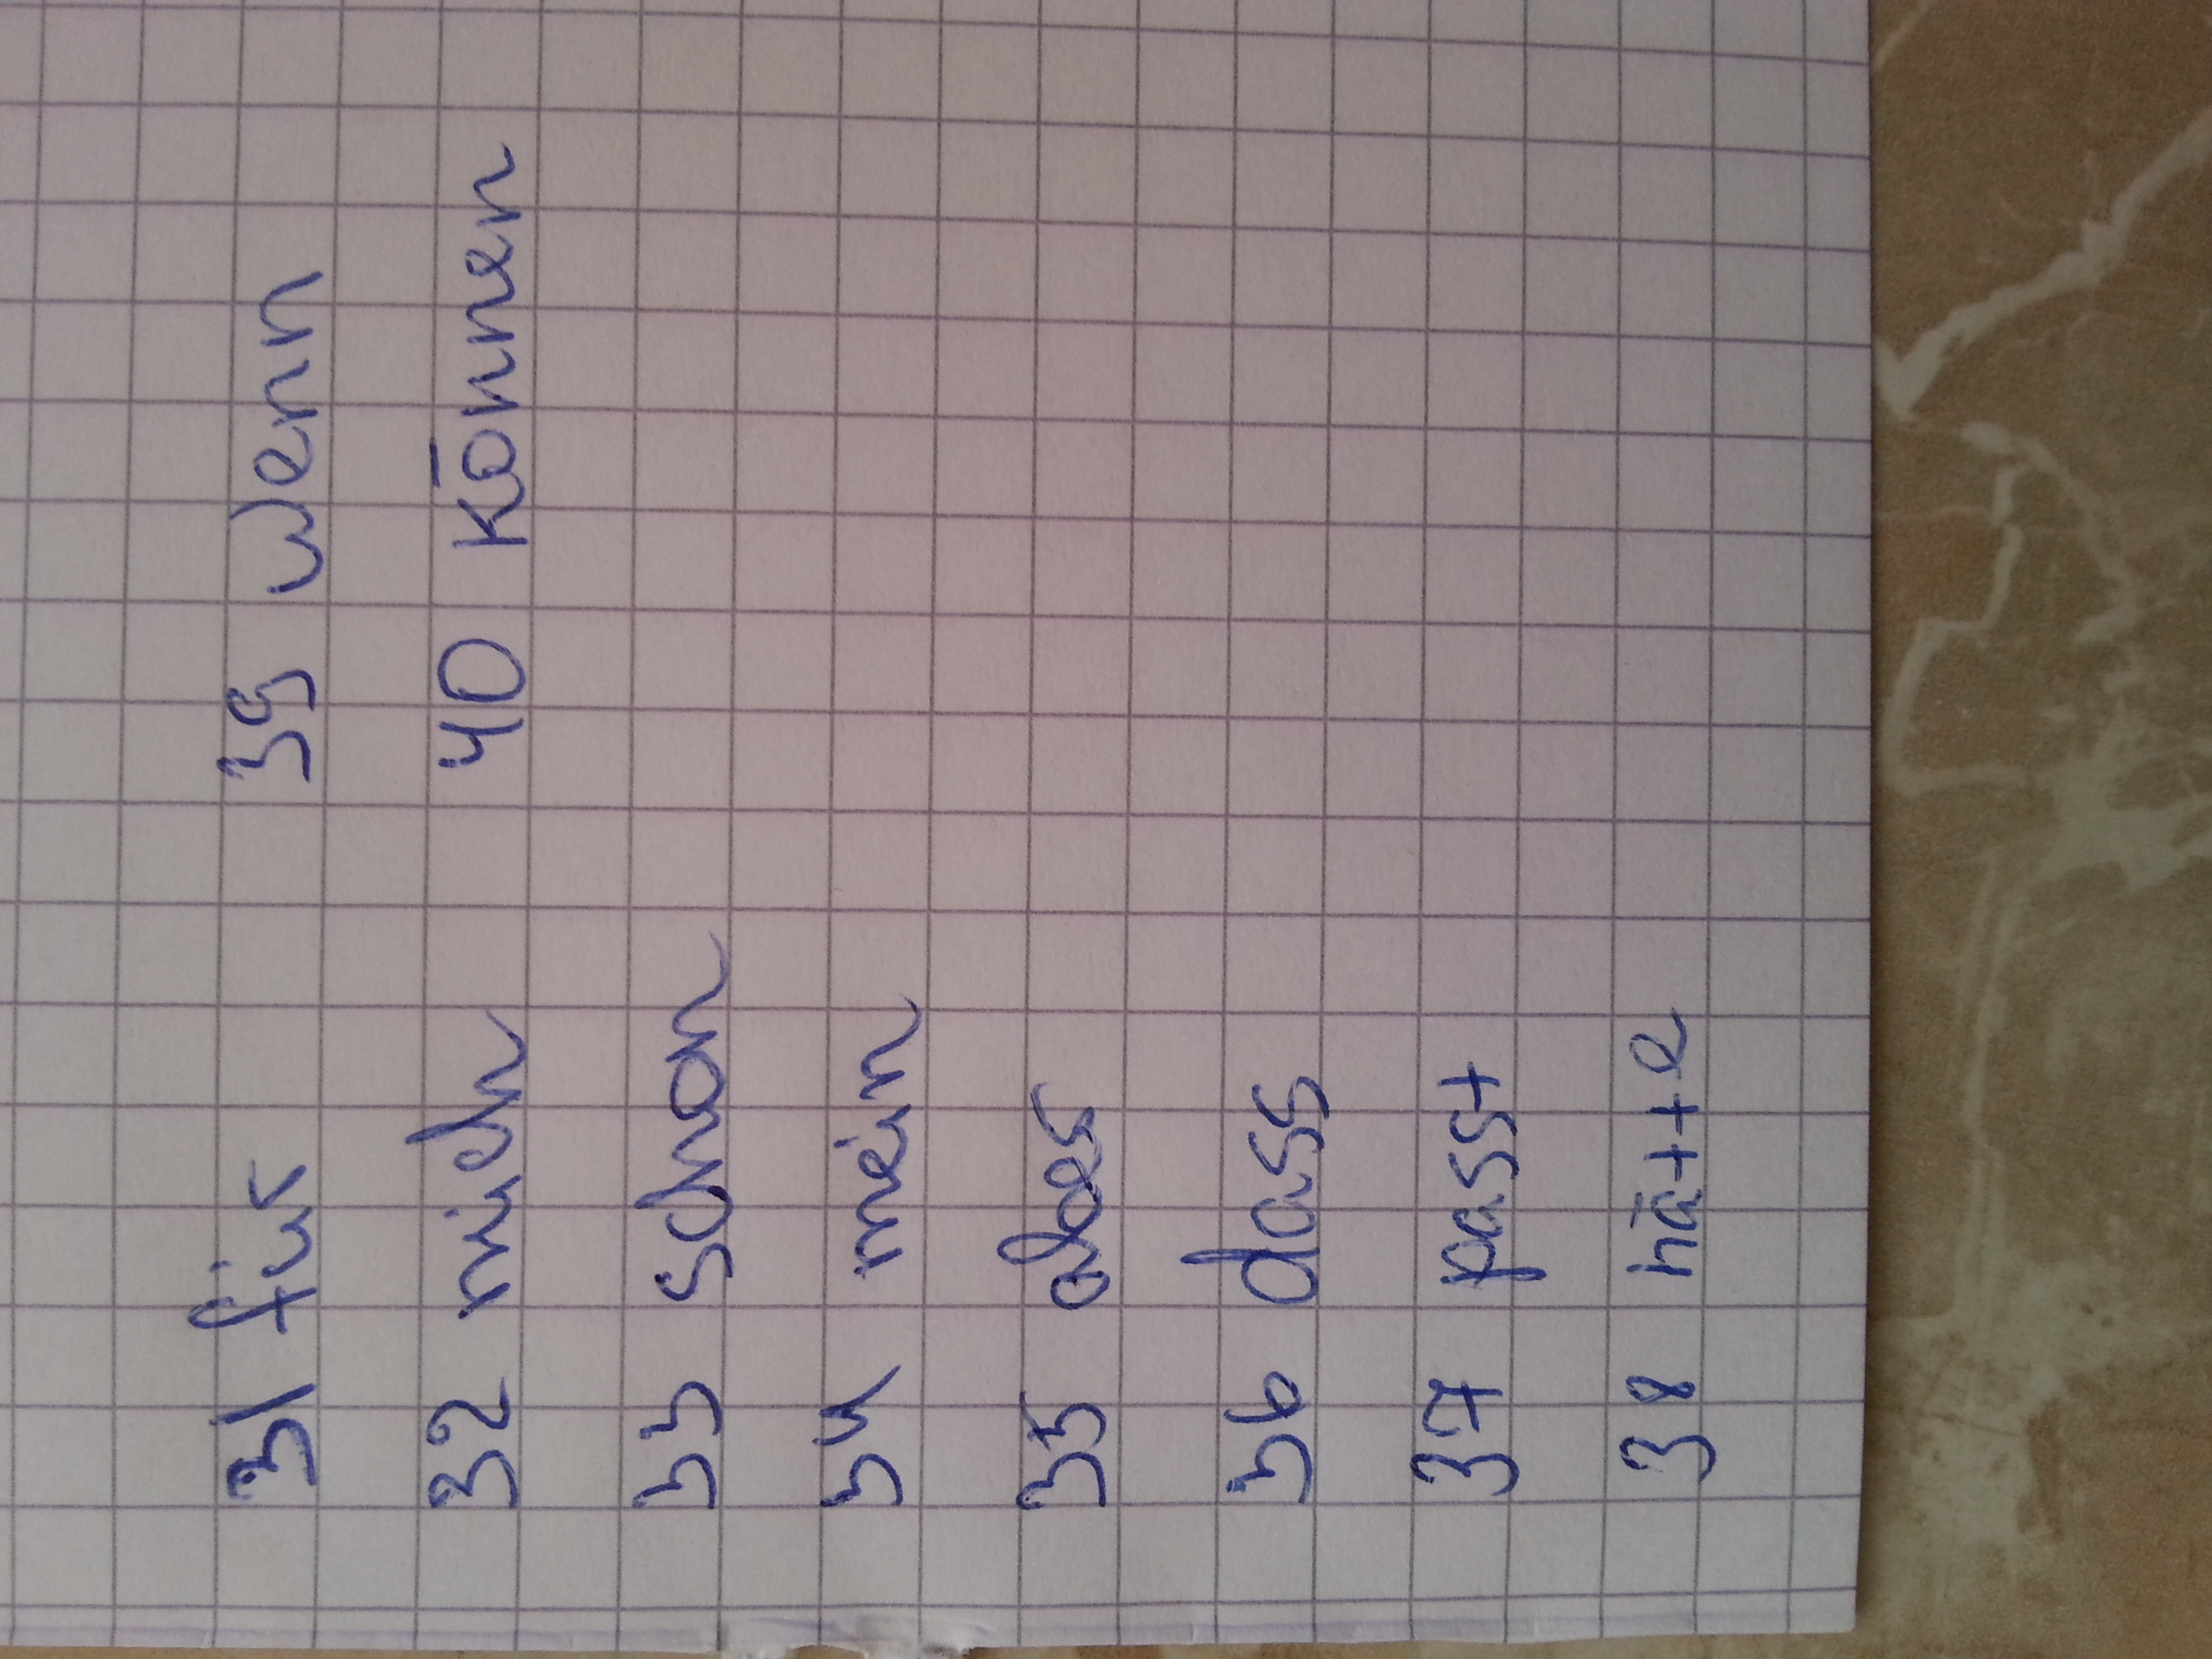 31 für
32 mich
33 schon
34 mein
35 aber
36 dass
37 passt
38 hätte
39 wenn
40 können